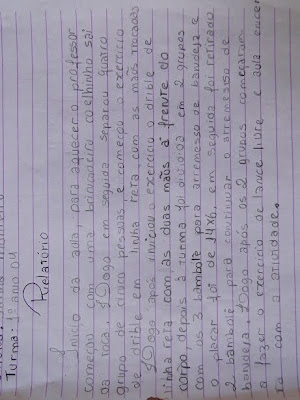 Turma: 1º ano 04
Relatório
Início da aula, para aquecer o professor
começou com uma brincadeira coelhinho sai
da toca. Logo em seguida separou quatro
grupo de cinco pessoas e começou o exercício
de drible em linha reta com as mãos trocadas
Logo após iniciou o exercício o drible de
linha reta com as duas mãos à frente do
corpo depois a turma foi dividida em 2 grupos
com os 3 bambolê para arremesso de bandeja e
o placar foi de 14x6, em seguida foi retirado
2 bambolê para continuar o arremesso de
bandeja. Logo após os 2 grupos começaram
a fazer o exercício de lance livre e aula encer
ra com a atividade.